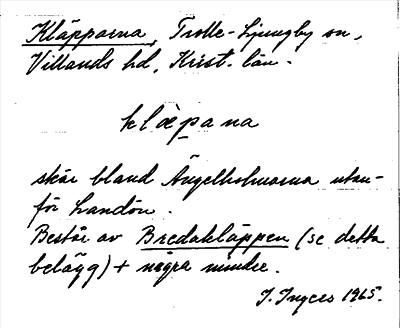 Kläpparna, Trolle-Ljungby sn,
Villands hd, Krist. län.
klæ̀pana
skär bland Ängelholmarna utan-
för Landön.
Består av Bredakläppen (se detta
belägg) + några mindre.
I. Ingers 1965.